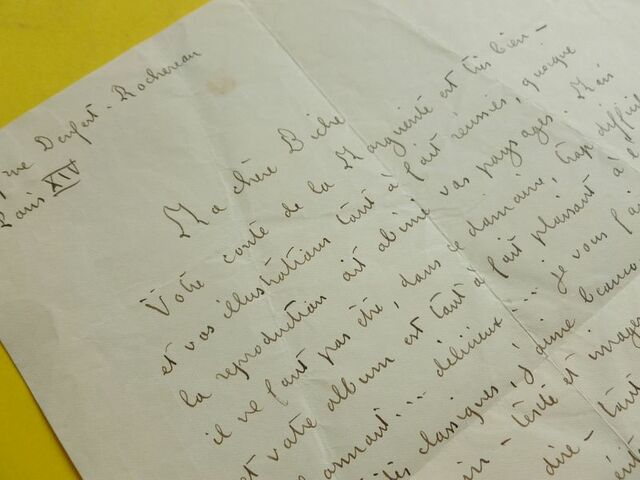 rue Denfert-Rochereau
Paris XIV
Ma chère Biche
Votre conte de la Marguerite est très bien -
et vos illustrations tout à fait réussies, quoique
la reproduction ait abimé vos paysages. Mais
il ne faut pas être, dans ce domaine, trop difficile
et votre album est tout à fait plaisant à l'
... délicieux ... je vous fais
classiques, j'aime beauco
- texte et images
dire - tout